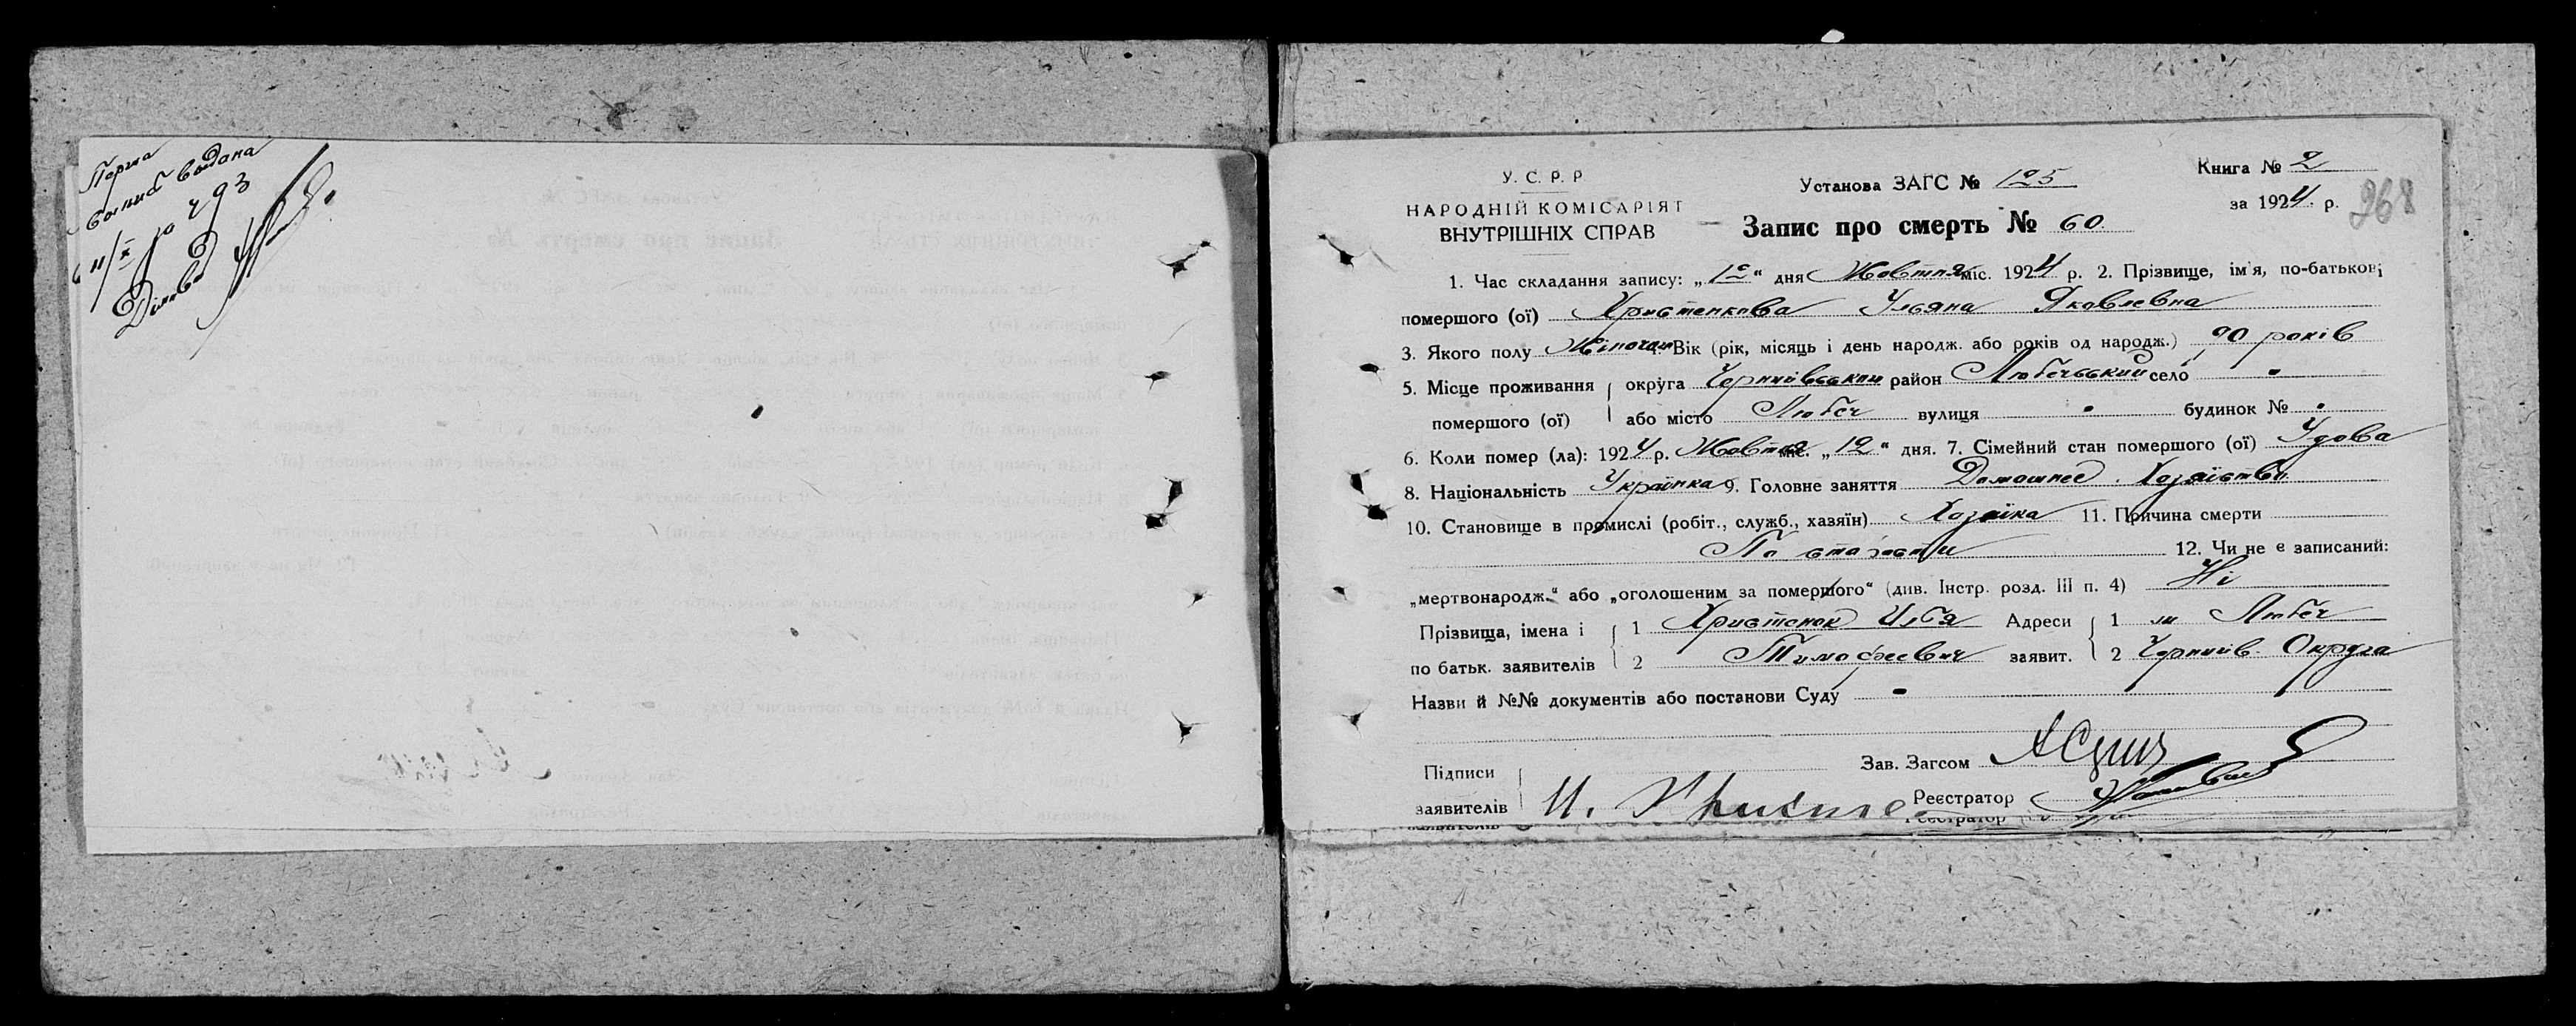 Перша
выпись выдана
11/X за 293
Діловод
У. С. Р. Р
НАРОДНІЙ КОМІСАРІЯТ
ВНУТРІШНІХ СПРАВ
Установа ЗАГС № 125
Запис про смерть № 60.
Книга № 2
за 1924 р.
268
1. Час складання запису: „ “ дня Жовтня міс. 1924 р. 2. Прізвище, ім'я, по-батькові
помершого (ої) Христенкова Ульяна Яковлевна
3. Якого полу Жіночий 4. Вік (рік, місяць і день народж. або років од народж.) 90 років
5. Місце проживання округа Чернигівський район Любечський село "
помершого (ої) або місто Любеч вулиця " будинок № "
6. Коли помер (ла): 1924 р. Жовтня міс. „ “ дня. 7. Сімейний стан помершого (ої) Удова
8. Національність Українка 9. Головне заняття Домошнее Хозяїство
10. Становище в промислі (робіт., служб., хазяїн) Хозяїка 11. Причина смерти
По старости 12. Чи не є записаний:
„мертвонародж.“ або „оголошеним за помершого“ (див. Інстр. розд. III п. 4) Ні
Прізвища, імена і 1 Христенок Илья Адреси 1 м Любеч
по батьк. заявителів 2 Тимофеевич заявит. 2 Чернигів. Округа
Назви й №№ документів або постанови Суду "
Підписи Зав. Загсом
заявителів И. Реєстратор
заявителів Реєстратор